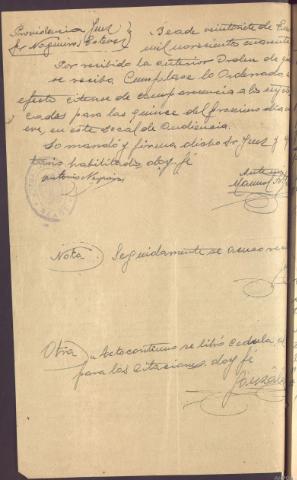 Providencia Juez
Sr Nogueira Esteves
veintisiete de
mil novecientos cuarenta
Por recibido la anterior Orden de
se reciba Cumplase lo Ordenado
efecto citense de comparencia a los
cados para las quince del proximo dia
eve, en este local de Audiencia.
Lo mandó y firma dicho Sr Juez y
habilitado, doy fé
Antonio Nogueira
Manuel
Nota
Seguidamente se acuso
Otra
Actocontinuo se libró cedula
para las citaciones, doy fé
González